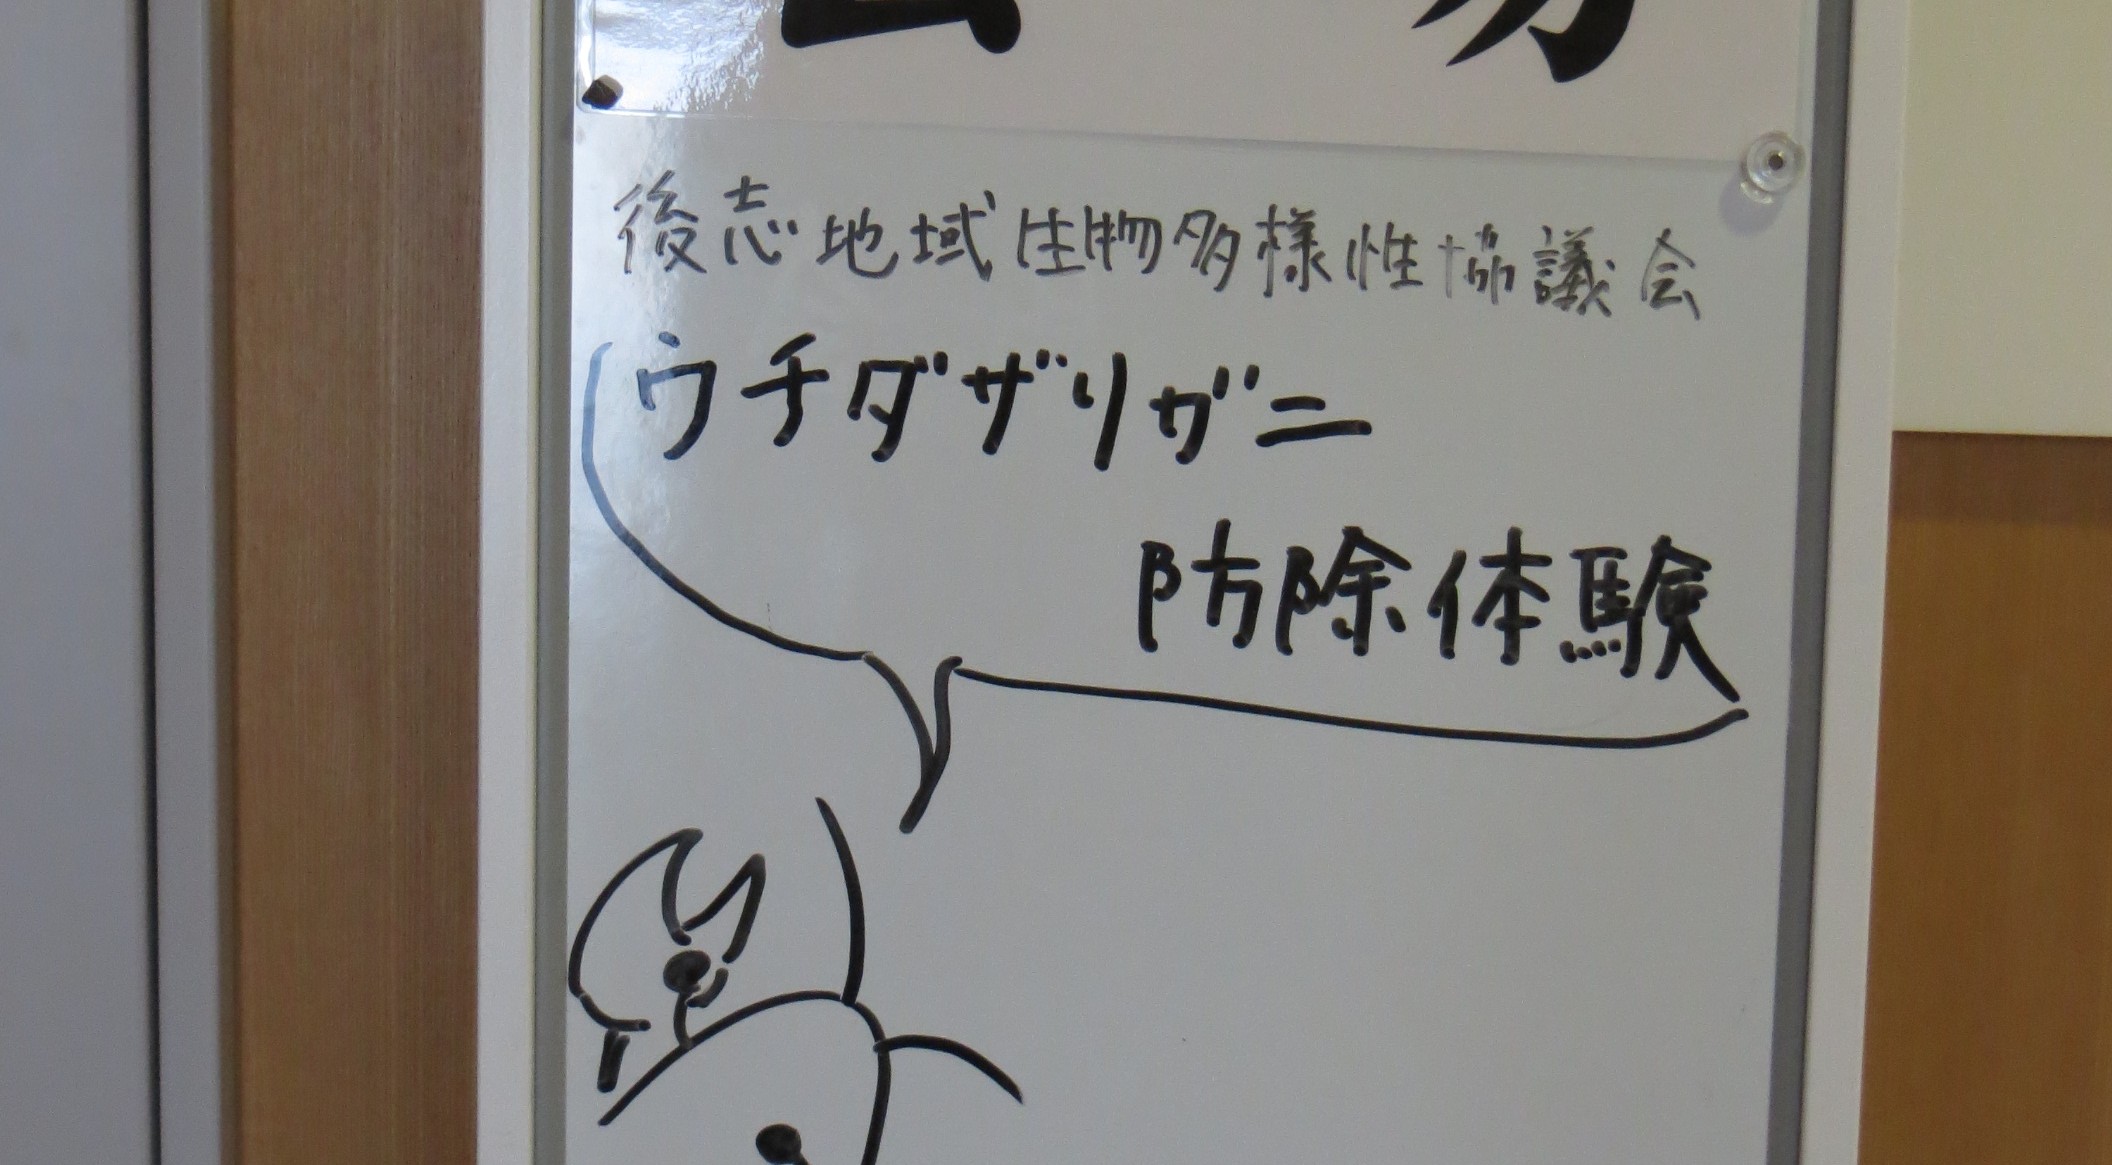 後志地域生物多様性協議会
ウチダザリガニ
防除体験